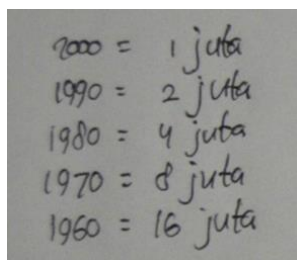 2000 = 1 juta
1990 = 2 juta
1980 = 4 juta
1970 = 8 juta
1960 = 16 juta